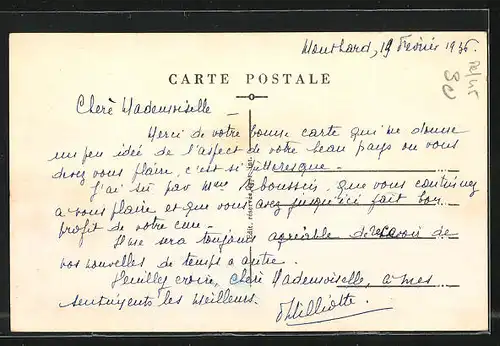 Montbard, 19 Février 1936
CARTE POSTALE
Chère Mademoiselle –
Merci de votre bonne carte qui me donne
un peu idée de l'aspect de votre beau pays où vous
devez vous plaire, c'est si pittoresque –
J'ai su par Mme que vous continuez
à vous plaire et que vous avez jusqu'ici fait bon
profit de votre cure –
Il me sera toujours agréable de recevoir de
vos nouvelles de temps à autre.
Veuillez croire, Chère Mademoiselle, à mes
sentiments les meilleurs.